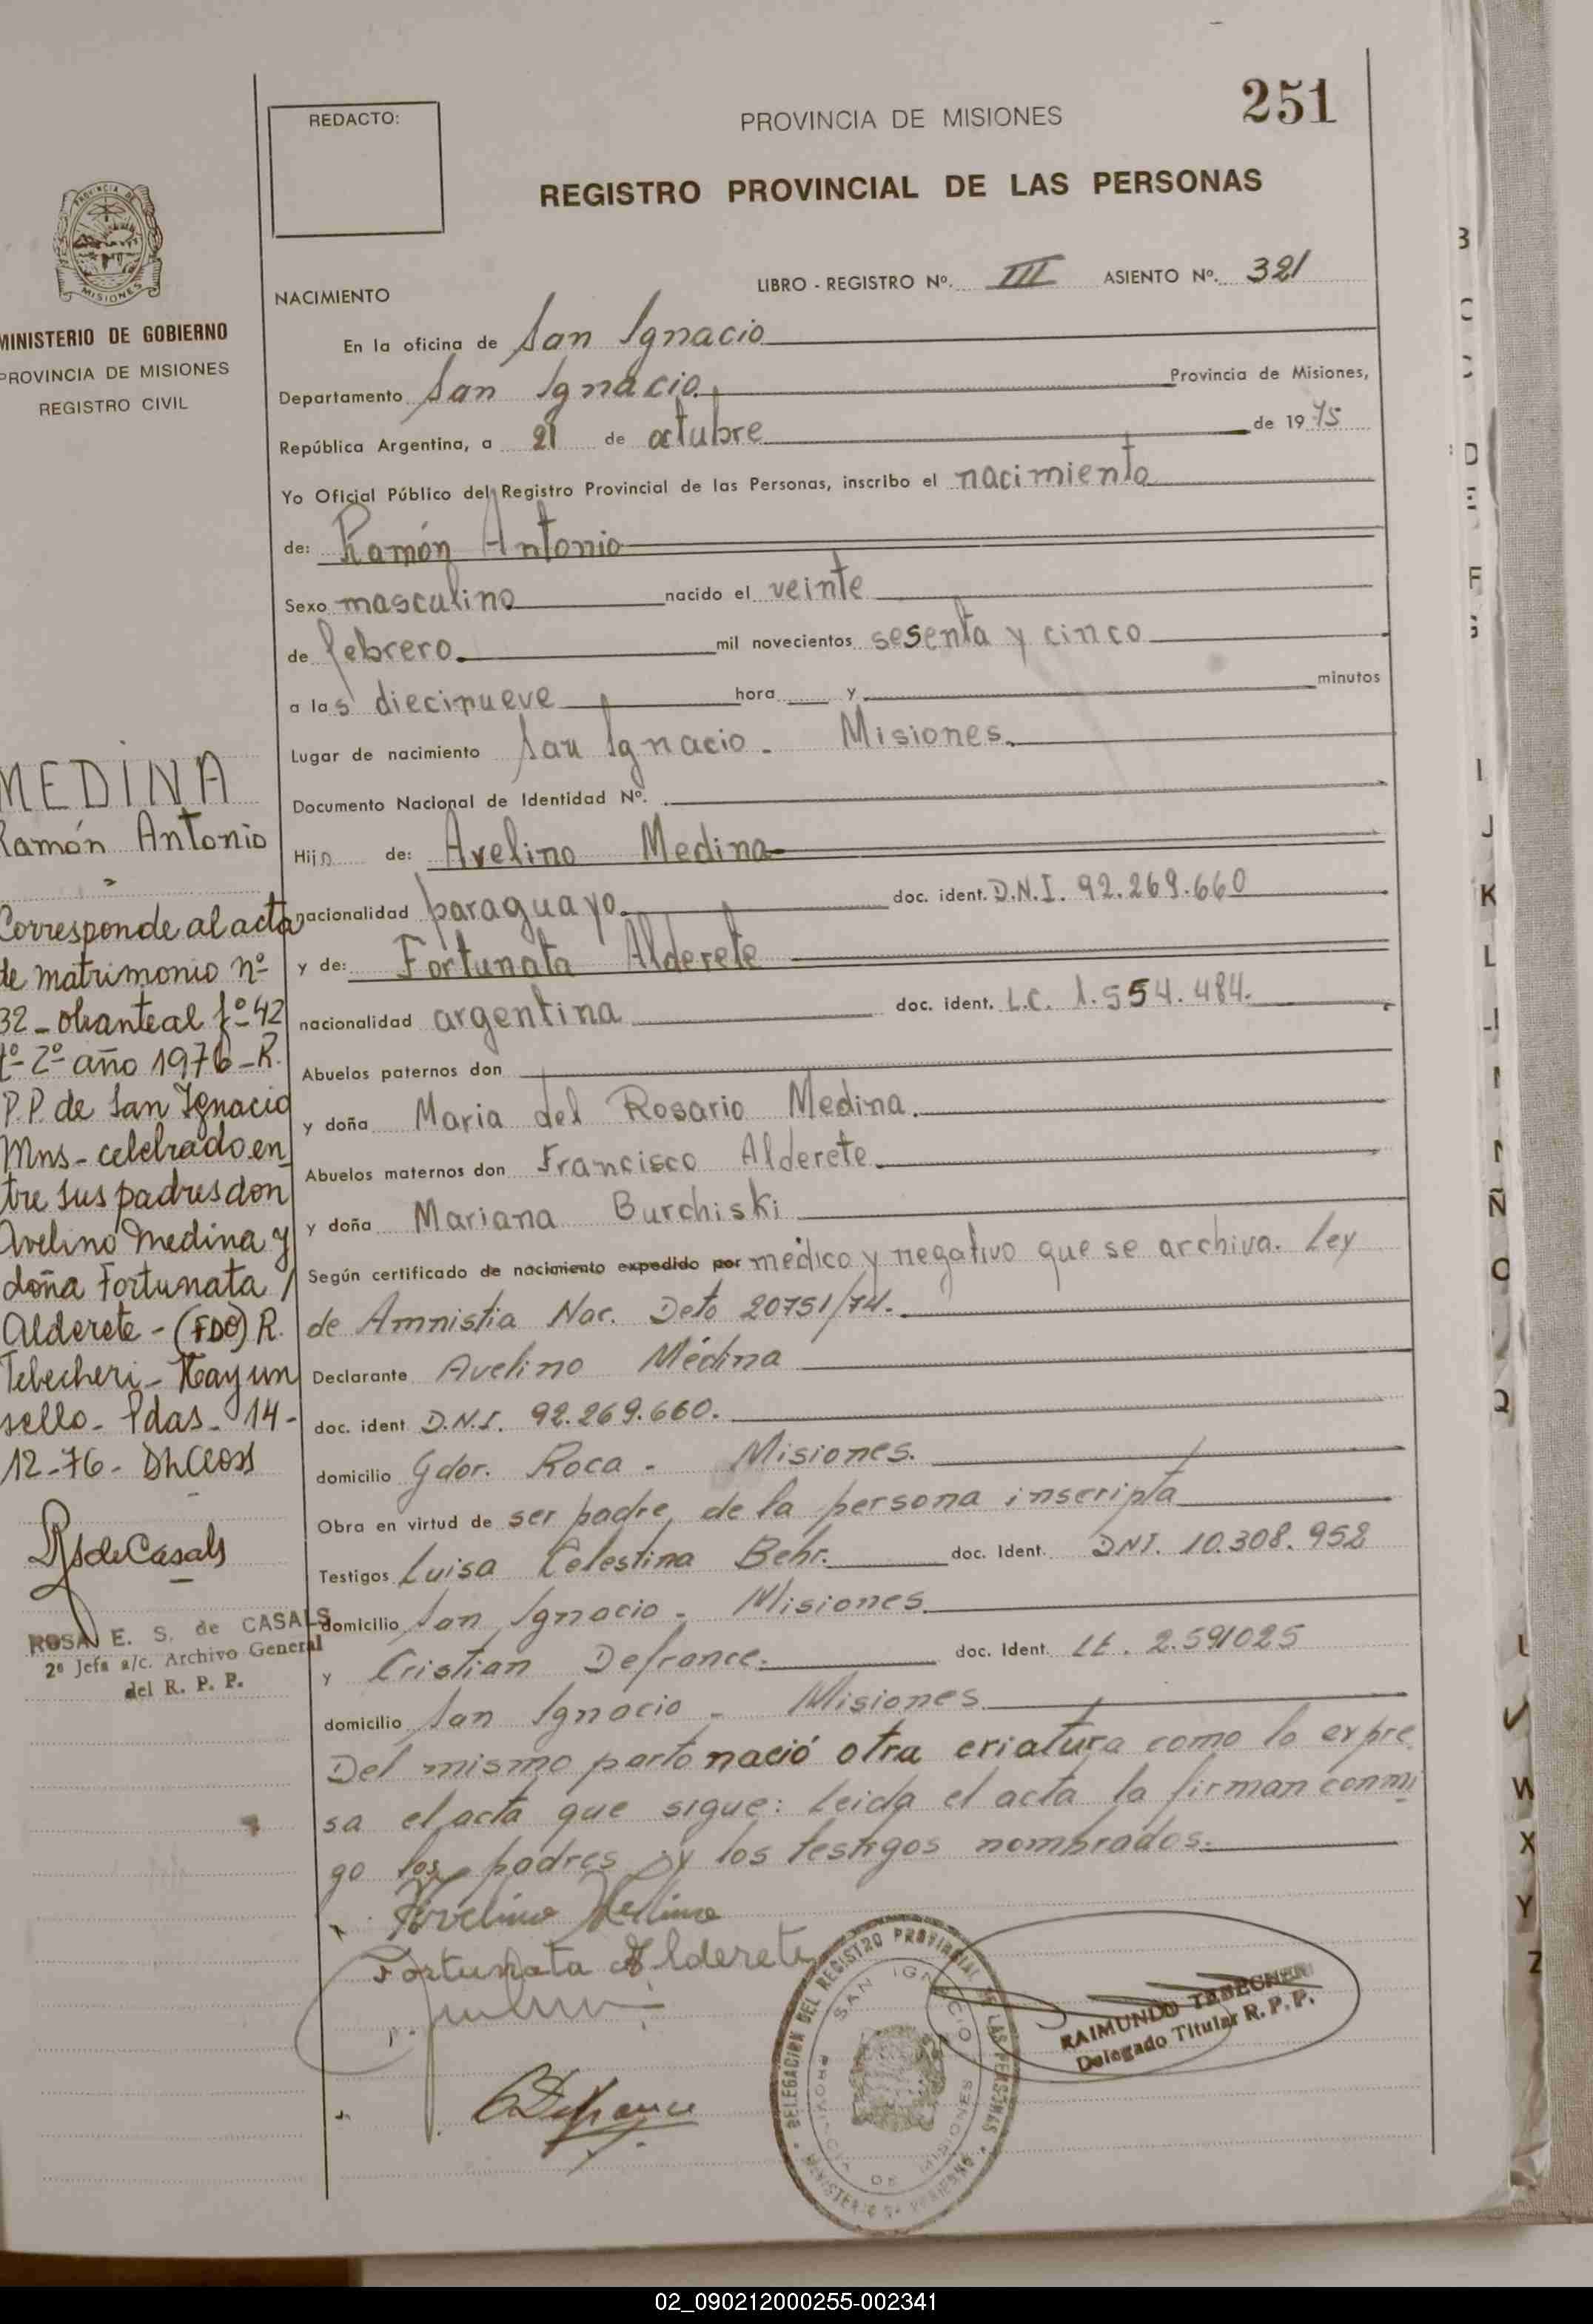 251
REDACTO:
PROVINCIA DE MISIONES
REGISTRO PROVINCIAL DE LAS PERSONAS
PROVINCIA DE
MISIONES
MINISTERIO DE GOBIERNO
PROVINCIA DE MISIONES
REGISTRO CIVIL
MEDINA
Ramón Antonio
Corresponde al acta
de matrimonio nº
32 - obrante al fº 42
tº 2º año 1976 - R.
P.P. de San Ignacio
Mns - celebrado en
tre sus padres don
Avelino Medina y
doña Fortunata
Alderete - (FDO) R.
Tebecheri - Hay un
sello - Pdas - 14 -
12-76 -
RSdeCasals
ROSA E. S. de CASALS
2ª Jefa a/c. Archivo General
del R. P. P.
LIBRO - REGISTRO Nº. III ASIENTO Nº. 321
NACIMIENTO
En la oficina de San Ignacio
Departamento San Ignacio. Provincia de Misiones,
República Argentina, a 21 de octubre de 1975
Yo Oficial Público del Registro Provincial de las Personas, inscribo el nacimiento
de: Ramón Antonio
Sexo masculino nacido el veinte
de febrero. mil novecientos sesenta y cinco
a las diecinueve hora y minutos
Lugar de nacimiento San Ignacio - Misiones.
Documento Nacional de Identidad Nº.
Hijo de: Avelino Medina
nacionalidad paraguayo. doc. ident. D.N.I. 92.269.660
y de: Fortunata Alderete
nacionalidad argentina doc. ident. L.C. 1.554.484.
Abuelos paternos don
y doña Maria del Rosario Medina.
Abuelos maternos don Francisco Alderete.
y doña Mariana Burchiski
Según certificado de nacimiento expedido por médico y negativo que se archiva. Ley
de Amnistia Nac. Deto 20751/74.
Declarante Avelino Médina
doc. ident. D.N.I. 92.269.660.
domicilio Gdor. Roca - Misiones.
Obra en virtud de ser padre de la persona inscripta
Testigos Luisa Celestina Behr. doc. Ident. DNI. 10.308.952
domicilio San Ignacio - Misiones.
y Cristian Defrance. doc. Ident. LE. 2.591025
domicilio San Ignacio - Misiones
Del mismo parto nació otra criatura como lo expre
sa el acta que sigue: Leida el acta la firman conmi
go los padres y los testigos nombrados.
Avelino Medina
Fortunata Alderete
CDefrance
DELEGACION DEL REGISTRO PROVINCIAL DE LAS PERSONAS
SAN IGNACIO
PROVINCIA DE MISIONES
MINISTERIO DE GOBIERNO
RAIMUNDO TEBECHERI
Delegado Titular R. P. P.
B
C
D
E
F
G
I
J
K
L
LL
M
N
Ñ
O
Q
U
V
W
X
Y
Z
02_090212000255-002341